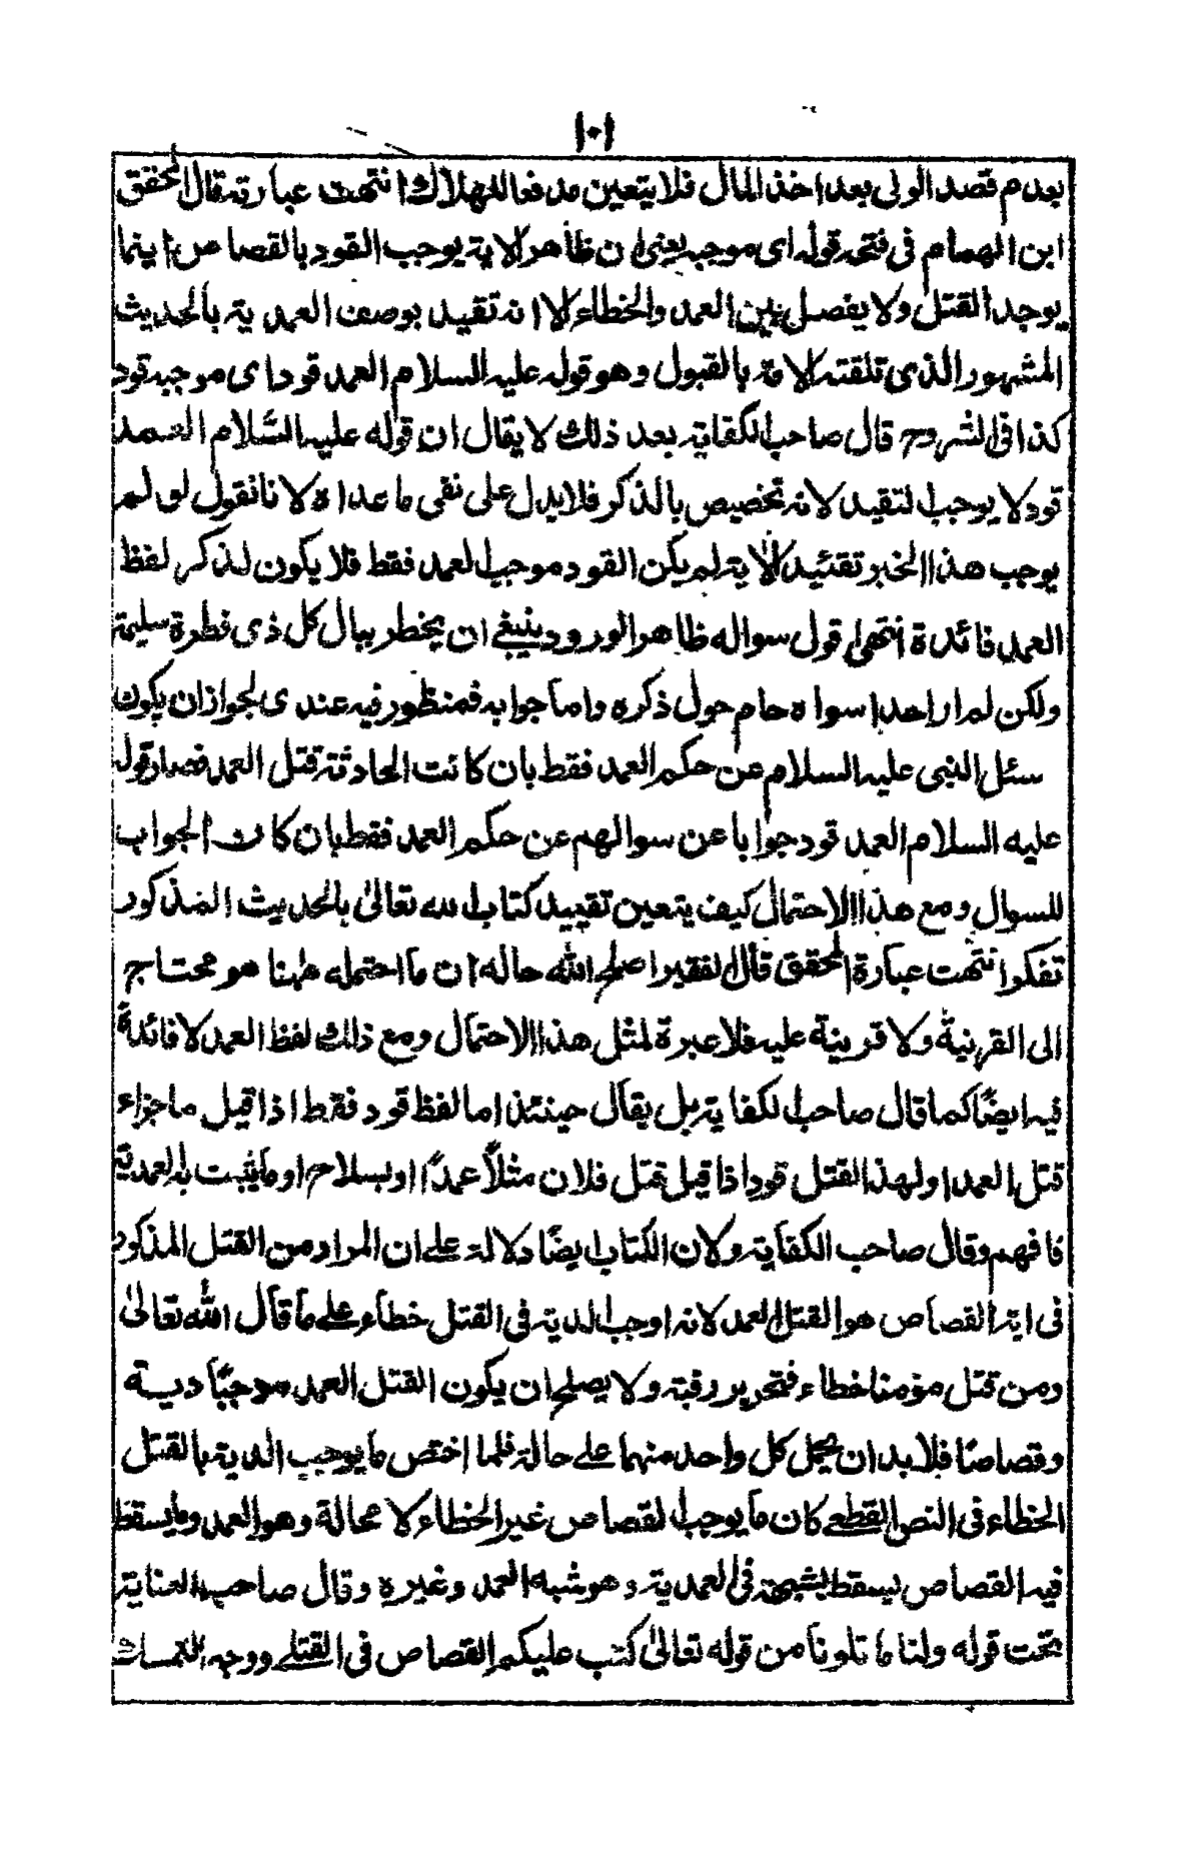 ١٠١
بعدم قصد الولى بعد اخذ المال فلا يتعين مدفعا للهلاك انتهت عبارته قال المحقق
ابن الهمام فى فتحه قوله اى موجبه يعنى ان ظاهر الاية يوجب القود بالقصاص اينما
يوجد القتل ولا يفصل بين العمد والخطاء الا انه تقيد بوصف العمدية بالحديث
المشهور الذى تلقته الامة بالقبول وهو قوله عليه السلام العمد قود اى موجبه قود
كذا فى الشروح قال صاحب الكفاية بعد ذلك لا يقال ان قوله عليه السَّلام العمد
قود لا يوجب التقيد لانه تخصيص بالذكر فلا يدل على نفى ما عداه لانا نقول لو لم
يوجب هذا الخبر تقئيد الاٰية لم يكن القود موجب العمد فقط فلا يكون لذكر لفظ
العمد فائدة انتهى اقول سواله ظاهر الورود ينبغى ان يخطر ببال كل ذى فطرة سليمة
ولكن لم ار احدا سواه حام حول ذكره واما جوابه فمنظور فيه عندى لجواز ان يكون
سئل النبى عليه السلام عن حكم العمد فقط بان كانت الحادثة قتل العمد فصار قوله
عليه السلام العمد قود جوابا عن سوالهم عن حكم العمد فقط بان كان الجواب
للسوال ومع هذا الاحتمال كيف يتعين تقييد كتاب الله تعالىٰ بالحديث المذكور
تفكر انتهت عبارة المحقق قال الفقير اصلح الله حاله ان ما احتمله هٰهنا هو محتاج
الى القرنية ولا قرينة عليه فلا عبرة لمثل هذا الاحتمال ومع ذلك لفظ العمد لا فائدةً
فيه ايضًا كما قال صاحب الكفاية بل يقال حينئذ اما لفظ قود فقط اذا قيل ما جزاء
قتل العمد او لهذا القتل قود اذا قيل قتل فلان مثلاً عمدًا او بسلاح او ما يثبت به العمدية
فافهم وقال صاحب الكفاية ولان الكتاب ايضًا دلالة على ان المراد من القتل المذكور
فى اية القصاص هو القتل العمد لانه اوجب الدية فى القتل خطاء على ما قال الله تعالىٰ
ومن قتل مؤمنا خطاء فتحرير رقبة ولا يصلح ان يكون القتل العمد موجبًا دية
وقصاصًا فلا بد ان يحمل كل واحد منهما على حالة فلما اختص ما يوجب الدية بالقتل
الخطاء فى النص القطعى كان ما يوجب القصاص غير الخطاء لا محالة وهو العمد وما يسقط
فيه القصاص يسقط بشبهة فى العمدية وهو شبه العمد وغيره وقال صاحب العناية
تحت قوله ولنا ما تلونا من قوله تعالىٰ كتب عليكم القصاص فى القتلى ووجه التمسك